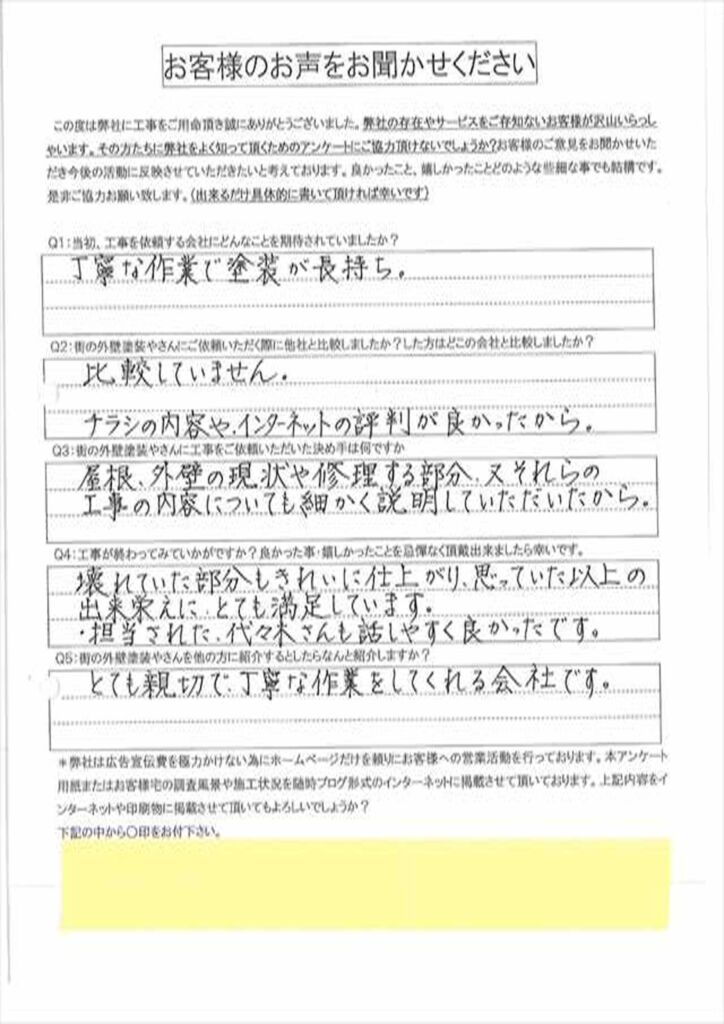 お客様のお声をお聞かせください
この度は弊社に工事をご用命頂き誠にありがとうございました。弊社の存在やサービスをご存知ないお客様が沢山いらっし
ゃいます。その方たちに弊社をよく知って頂くためのアンケートにご協力頂けないでしょうか?お客様のご意見をお聞かせいた
だき今後の活動に反映させていただきたいと考えております。良かったこと、嬉しかったことどのような些細な事でも結構です。
是非ご協力お願い致します。(出来るだけ具体的に書いて頂ければ幸いです)
Q1:当初、工事を依頼する会社にどんなことを期待されていましたか?
丁寧な作業で塗装が長持ち。
Q2:街の外壁塗装やさんにご依頼いただく際に他社と比較しましたか?した方はどこの会社と比較しましたか?
比較していません。
チラシの内容や、インターネットの評判が良かったから。
Q3:街の外壁塗装やさんに工事をご依頼いただいた決め手は何ですか
屋根、外壁の現状や修理する部分、又それらの
工事の内容についても細かく説明していただいたから。
Q4:工事が終わってみていかがですか?良かった事・嬉しかったことを忌憚なく頂戴出来ましたら幸いです。
壊れていた部分もきれいに仕上がり、思っていた以上の
出来栄えに、とても満足しています。
・担当された、代々木さんも話しやすく良かったです。
Q5:街の外壁塗装やさんを他の方に紹介するとしたらなんと紹介しますか?
とても親切で、丁寧な作業をしてくれる会社です。
*弊社は広告宣伝費を極力かけない為にホームページだけを頼りにお客様への営業活動を行っております。本アンケート
用紙またはお客様宅の調査風景や施工状況を随時ブログ形式のインターネットに掲載させて頂いております。上記内容をイ
ンターネットや印刷物に掲載させて頂いてもよろしいでしょうか?
下記の中から〇印をお付下さい。